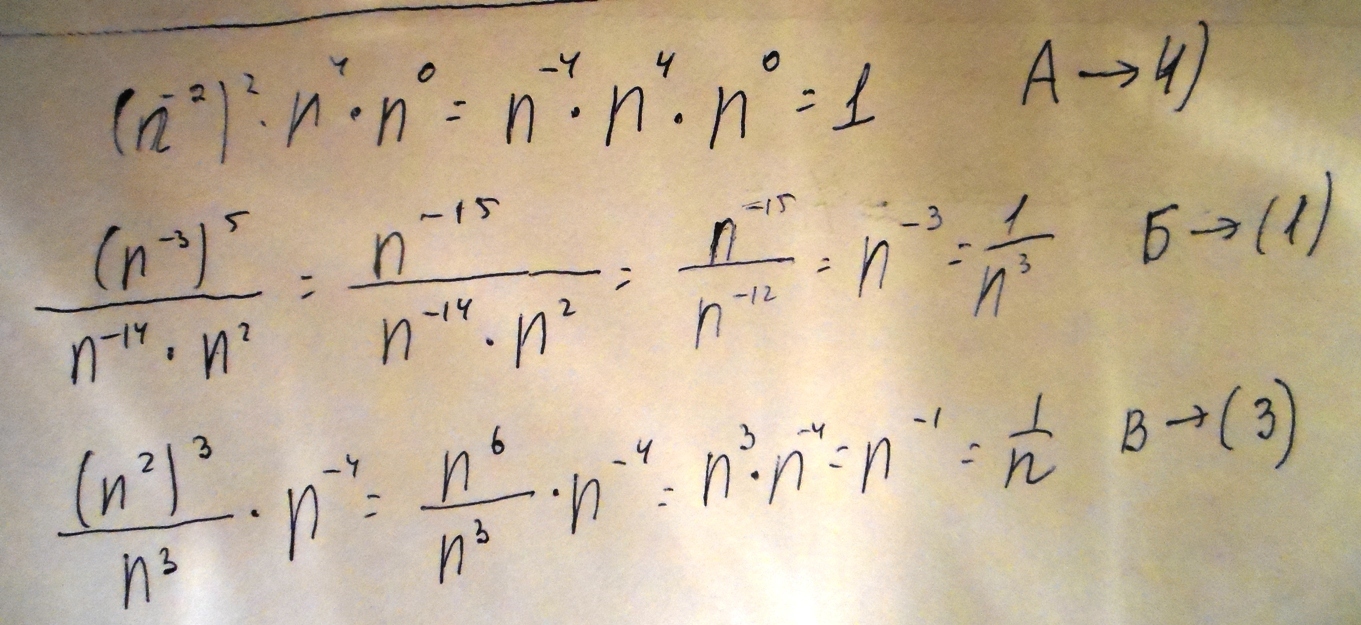 (n⁻²)² · n⁴ · n⁰ = n⁻⁴ · n⁴ · n⁰ = 1 А → 4)
(n⁻³)⁵ / (n⁻¹⁴ · n²) = n⁻¹⁵ / (n⁻¹⁴ · n²) = n⁻¹⁵ / n⁻¹² = n⁻³ = 1 / n³ Б → (1)
(n²)³ / n³ · n⁻⁴ = n⁶ / n³ · n⁻⁴ = n³ · n⁻⁴ = n⁻¹ = 1 / n В → (3)